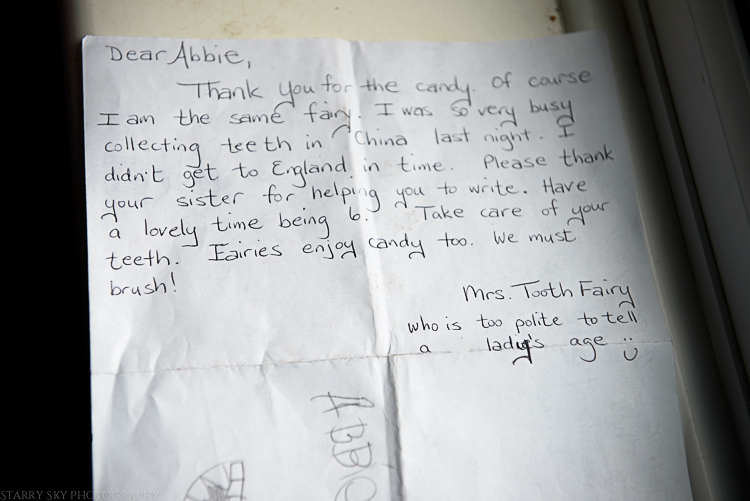 Dear Abbie,
Thank you for the candy. Of course
I am the same fairy. I was so very busy
collecting teeth in China last night. I
didn't get to England in time. Please thank
your sister for helping you to write. Have
a lovely time being 6. Take care of your
teeth. Fairies enjoy candy too. We must
brush!
Mrs. Tooth Fairy
who is too polite to tell
a lady's age
ABBie
STARRY SKY PHOTOGRAPHY